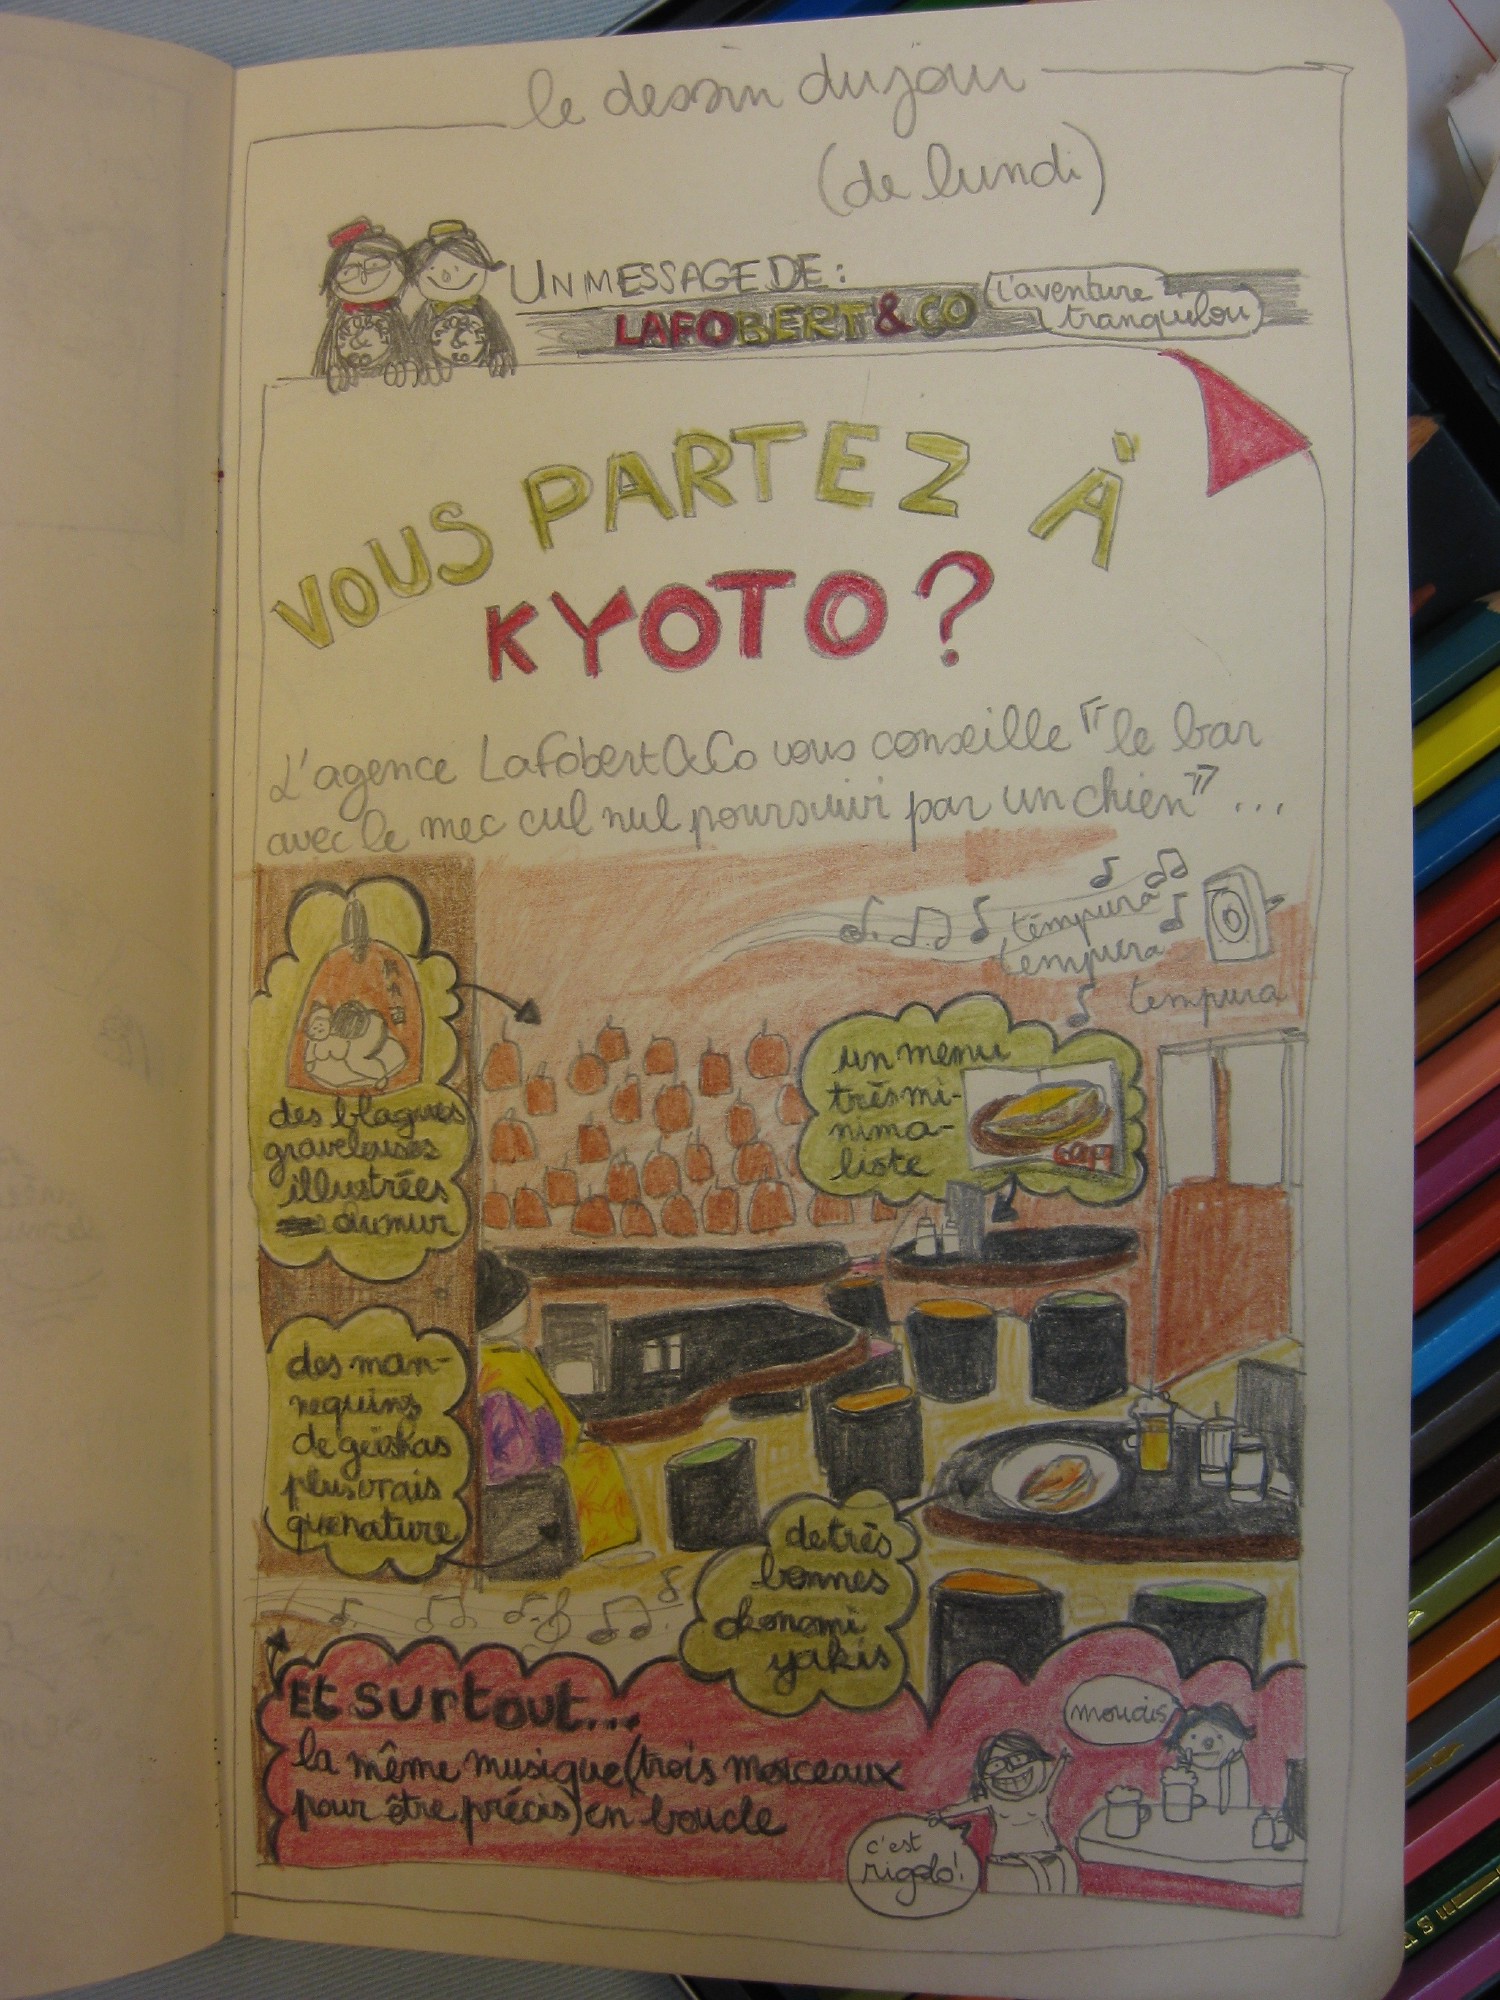 le dessin du jour
(de lundi)
UN MESSAGE DE :
LAFOBERT & CO
l'aventure
tranquilou
VOUS PARTEZ À
KYOTO ?
L'agence Lafobert&Co vous conseille "le bar
avec le mec cul nul poursuivi par un chien" ...
tempura
tempura
tempura
des blagues
graveleuses
illustrées
au mur
un menu
très mi-
nima-
liste
des man-
nequins
de geishas
plus vrais
que nature
de très
bonnes
okonomi
yakis
Et surtout...
la même musique (trois morceaux
pour être précis) en boucle
mouais
c'est
rigolo!